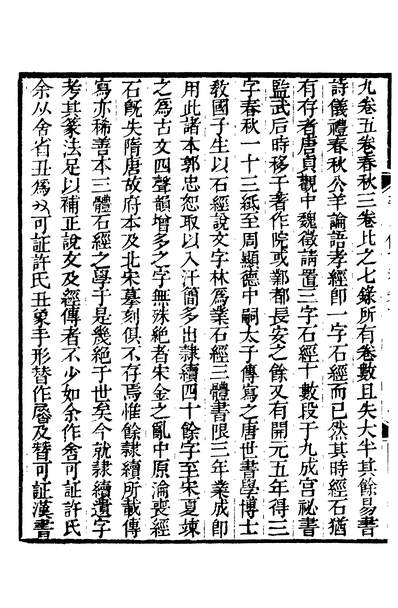 九卷五卷春秋三卷比之七錄所有卷數且失大半其餘易書
詩儀禮春秋公羊論語孝經卽一字石經而已然其時經石猶
有存者唐貞觀中魏徵請置三字石經十數段于九成宮祕書
監武后時移于著作院或鄴都長安之餘又有開元五年得三
字春秋一十二紙至周顯德中嗣太子傳寫之唐世書學博士
敎國子生以石經說文字林爲業石經三體書限三年業成卽
用此諸本郭忠恕取以入汗簡多出隷續四十餘字至宋夏竦
之爲古文四聲韻增多之字無殊絶者宋金之亂中原淪喪經
石旣失隋唐故府本及北宋摹刻俱不存焉惟餘隷續所載傳
寫亦稀善本三體石經之學于是幾絶于世矣今就隷續遺字
考其篆法足以補正說文及經傳者不少如余作舍可証許氏
余从舍省丑爲ヌ可証許氏丑象手形替作朁及替可証漢書